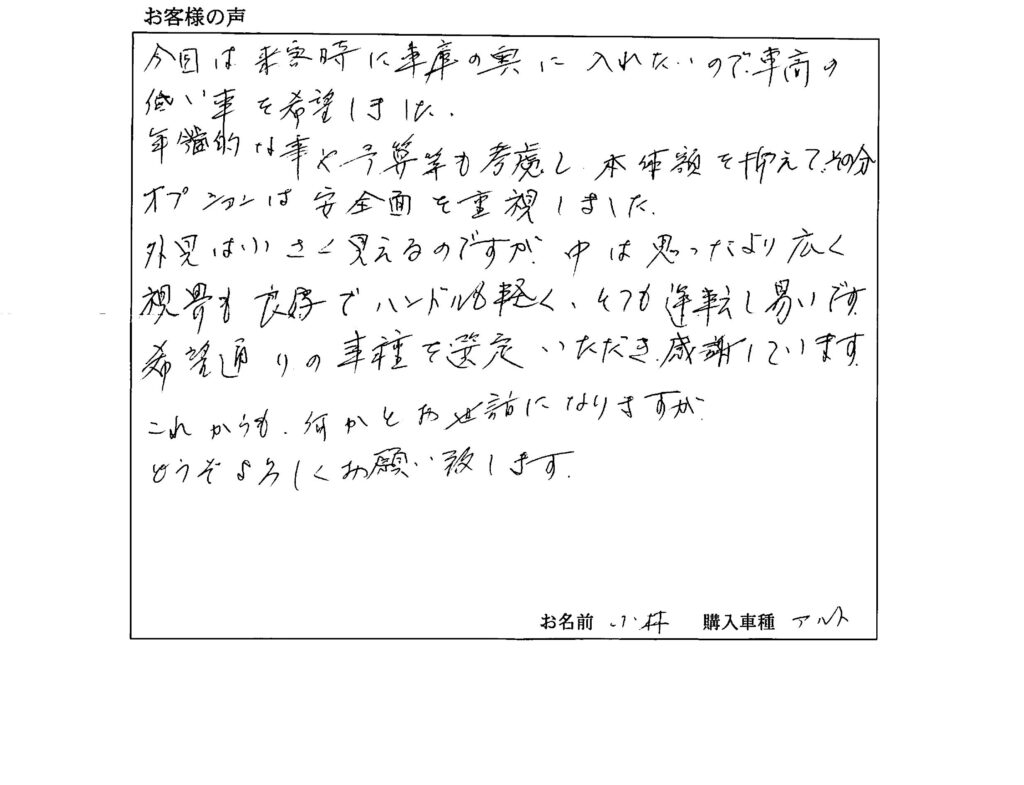 お客様の声
今回は来客時に車庫の奥に入れたいので、車高の
低い車を希望しました。
年齢的な事や予算等も考慮し、本体額を抑えて、その分
オプションは安全面を重視しました。
外見は小さく見えるのですが、中は思ったより広く
視界も良好でハンドルも軽く、とても運転し易いです。
希望通りの車種を選定いただき、感謝しています。
これからも、何かとお世話になりますが、
どうぞよろしくお願い致します。
お名前 小林 購入車種 アルト